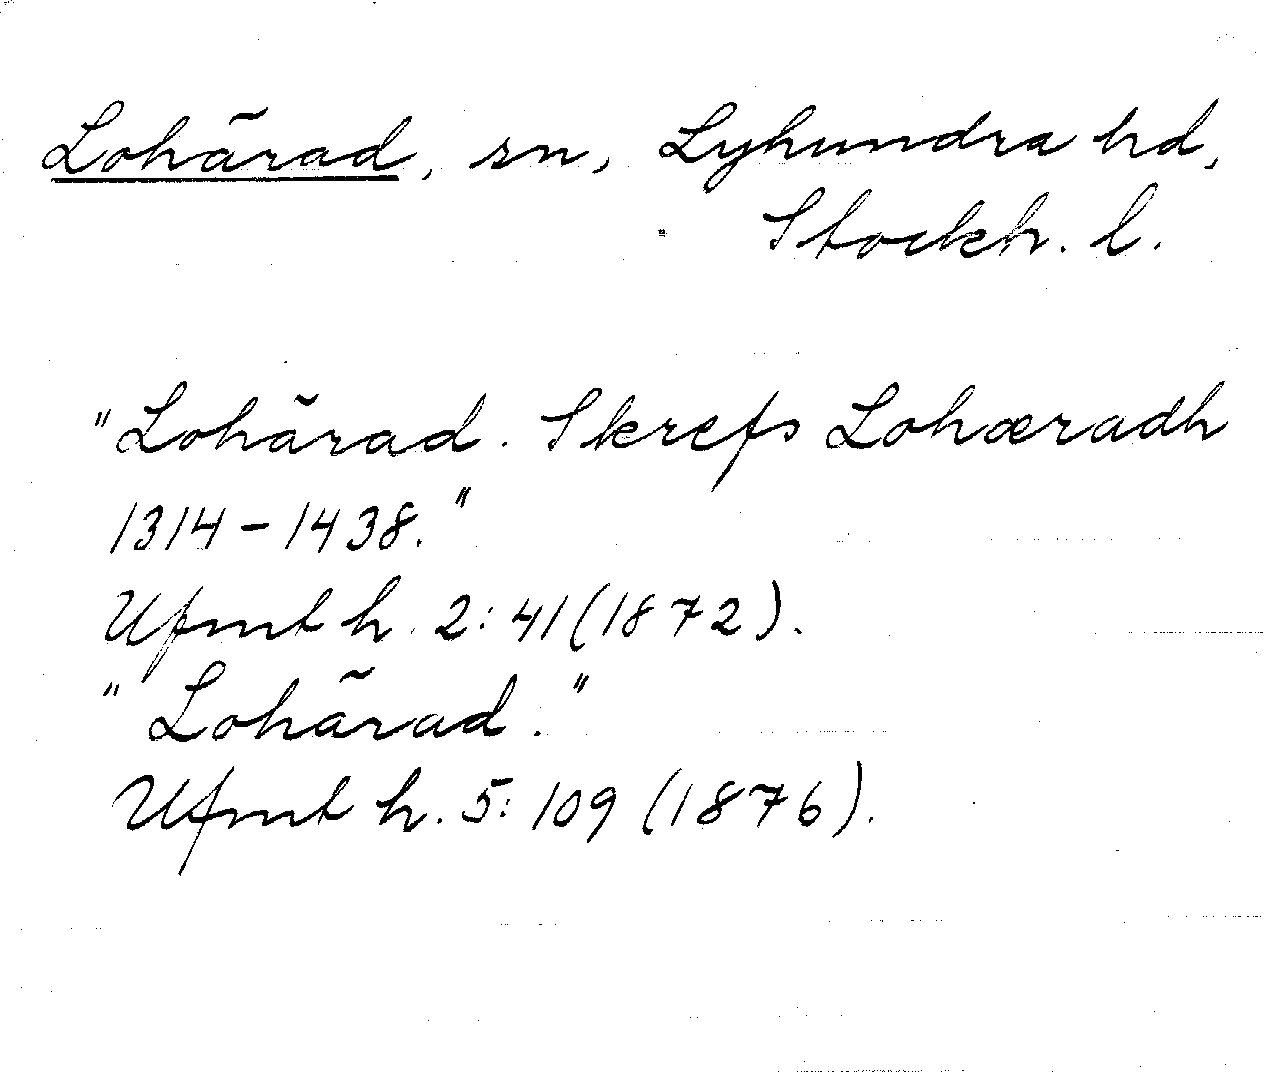 Lohärad, sn, Lyhundra hd,
Stockh. l.
"Lohärad. Skrefs Lohæradh
1314-1438."
Ufmt h. 2:41 (1872).
"Lohärad."
Ufmt h. 5:109 (1876).